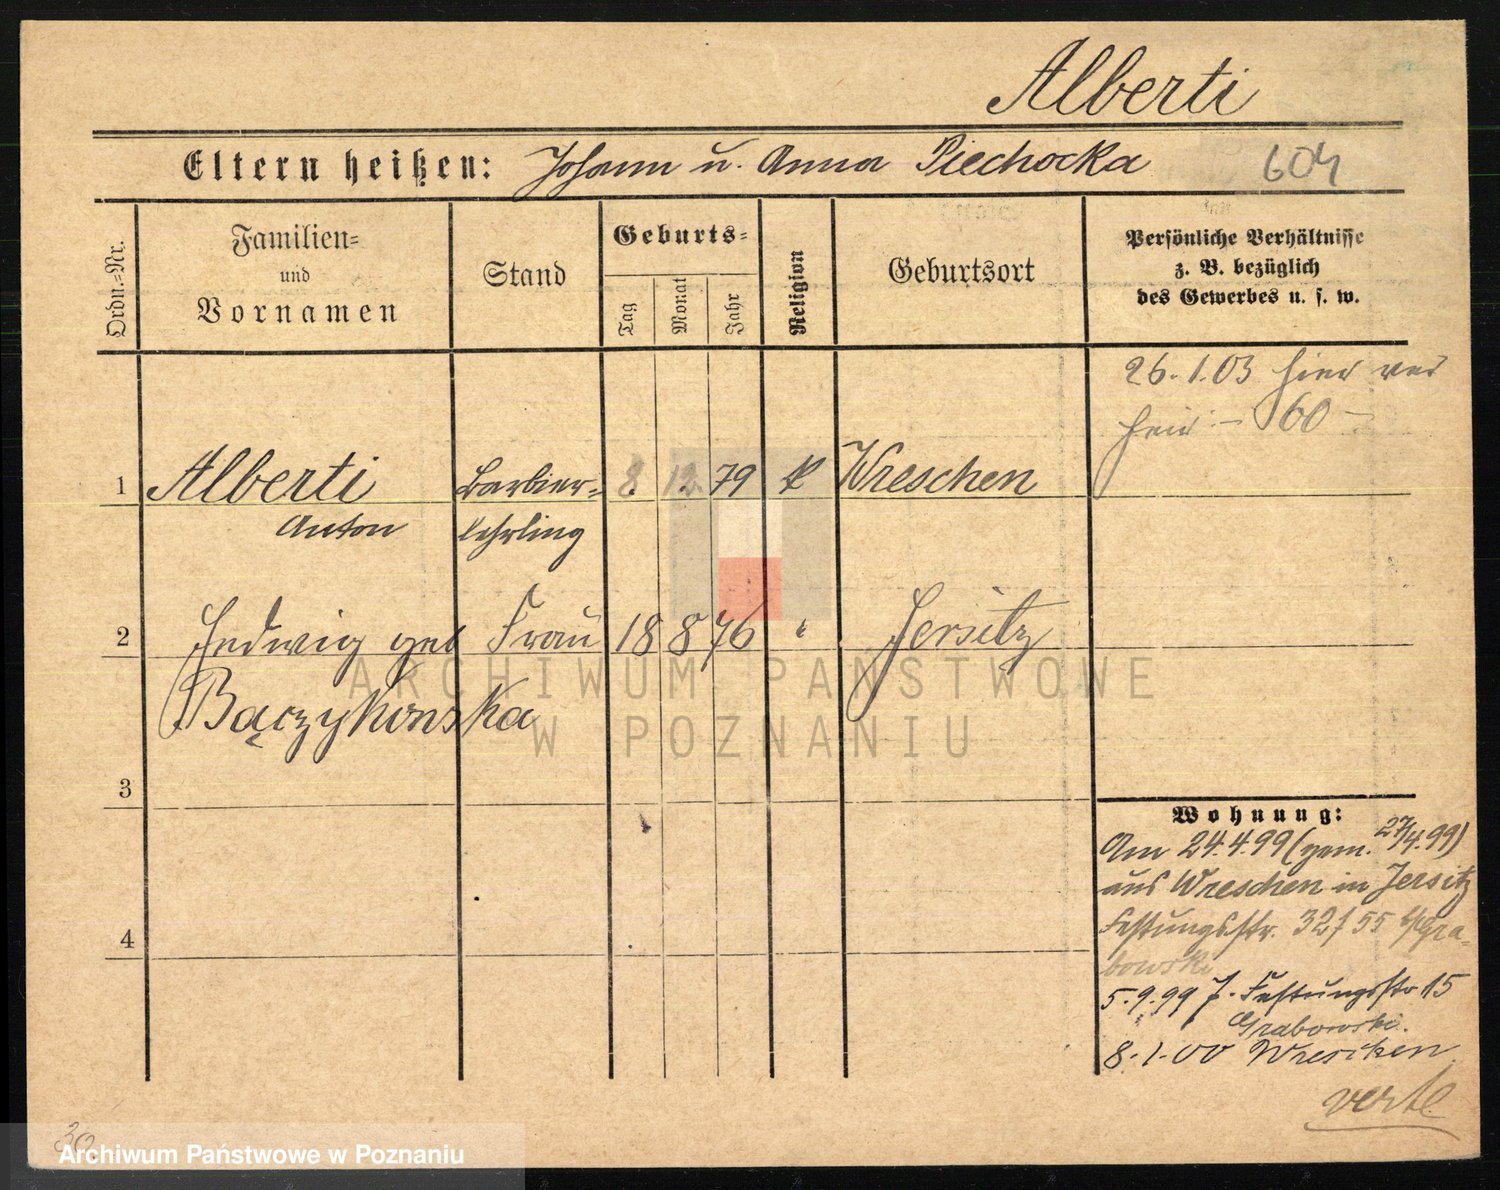 Alberti
Eltern heißen: Johann u. Anna Piechocka 604
Ordn.-Nr.
Familien-
und
Vornamen
Stand
Geburts-
Tag
Monat
Jahr
Religion
Geburtsort
Persönliche Verhältnisse
z. B. bezüglich
des Gewerbes u. s. w.
26.1.03 hier ver
heir. – 60 –
1 Alberti Barbier- 8. 12. 79 k Wreschen
Anton lehrling
2 Hedwig geb Frau 18 8 76 " Jersitz
Bączykowska
3
4
Wohnung:
Am 24.4.99 (gem. 27/4.99)
aus Wreschen in Jersitz
Festungsstr. 32/55 b/Gra-
bowski
5.9.99 J. Festungsstr 15
Grabowski.
8.1.00 Wreschen
verte
30
ARCHIWUM PAŃSTWOWE
W POZNANIU
Archiwum Państwowe w Poznaniu